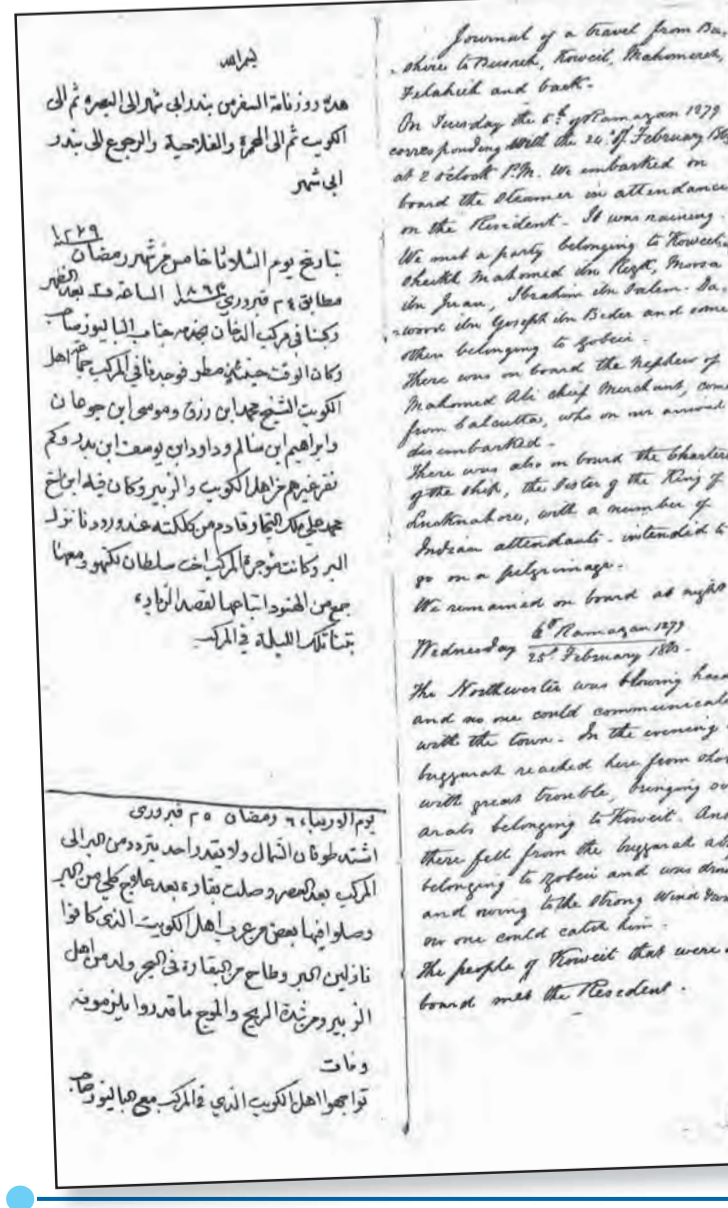 بسم الله
هذه روزنامة السفر من بندر ابي شهر الى البصره ثم الى
الكويت ثم الى المحمرة والفلاحية والرجوع الى بندر
ابي شهر
١٢٧٩
بتاريخ يوم الثلاثا خامس شهر رمضان
مطابق ٢٤ فبروري الساعة ٢ بعد الظهر
ركبنا في مركب الدخان بخدمة جناب الباليوز صاحب
وكان الوقت حينئذ مطر فوجدنا في المركب جماعة اهل
الكويت الشيخ محمد ابن رزق وموسى ابن جوعان
وابراهيم ابن سالم وداود ابن يوسف ابن بدر وكم
نفر غيرهم من اهل الكويت والزبير وكان فيه ابن اخ
محمد علي ملك التجار قادم من كلكته عند ورودنا نزل
البر وكانت مؤجرة المركب اخت سلطان لكنهو ومعها
جمع من الهنود اتباعها لقصد الزيارة
بتنا تلك الليلة في المركب
يوم الاربعاء ٦ رمضان ٢٥ فبروري
اشتد طوفان الشمال ولا يقدر احد يتردد من البر الى
المركب بعد العصر وصلت بقارة بعد علاج كلي من البر
وصلوا فيها بعض من عرب اهل الكويت الذي كانوا
نازلين البر وطاح من البقارة في البحر ولد من اهل
الزبير ومن شدة الريح والموج ما قدروا يلزمونه
ومات
تواجهوا اهل الكويت الذي في المركب مع الباليوز صاحب
Journal of a travel from Bu-
shire to Busreh, Koweit, Mahomereh,
Felahieh and back.
On Tuesday the 5th of Ramazan 1279
corresponding with the 24th of February
at 2 o'clock P.M. we embarked on
board the Steamer in attendance
on the Resident. It was raining.
We met a party belonging to Koweit,
Sheikh Mahomed ibn Rezk, Moosa
ibn Juan, Ibrahim ibn Salem. Da-
-wood ibn Yoseph ibn Beder and some
others belonging to Zobeir.
There was on board the nephew of
Mahomed Ali chief Merchant, come
from Calcutta, who on our arrival
disembarked.
There was also on board the Charterer
of the ship, the Sister of the King of
with a number of
Indian attendants. intended to
go on a pilgrimage.
We remained on board at night
Wednesday 6th Ramazan 1279
25th February 1863.
The Northwester was blowing hard
and no one could communicate
with the town. In the evening
buggarah reached here from shore
with great trouble, bringing
arabs belonging to Koweit. And
there fell from the buggarah
belonging to Zobeir and was
and owing to the strong Wind
no one could catch him.
The people of Koweit that were
board met the Resedent.